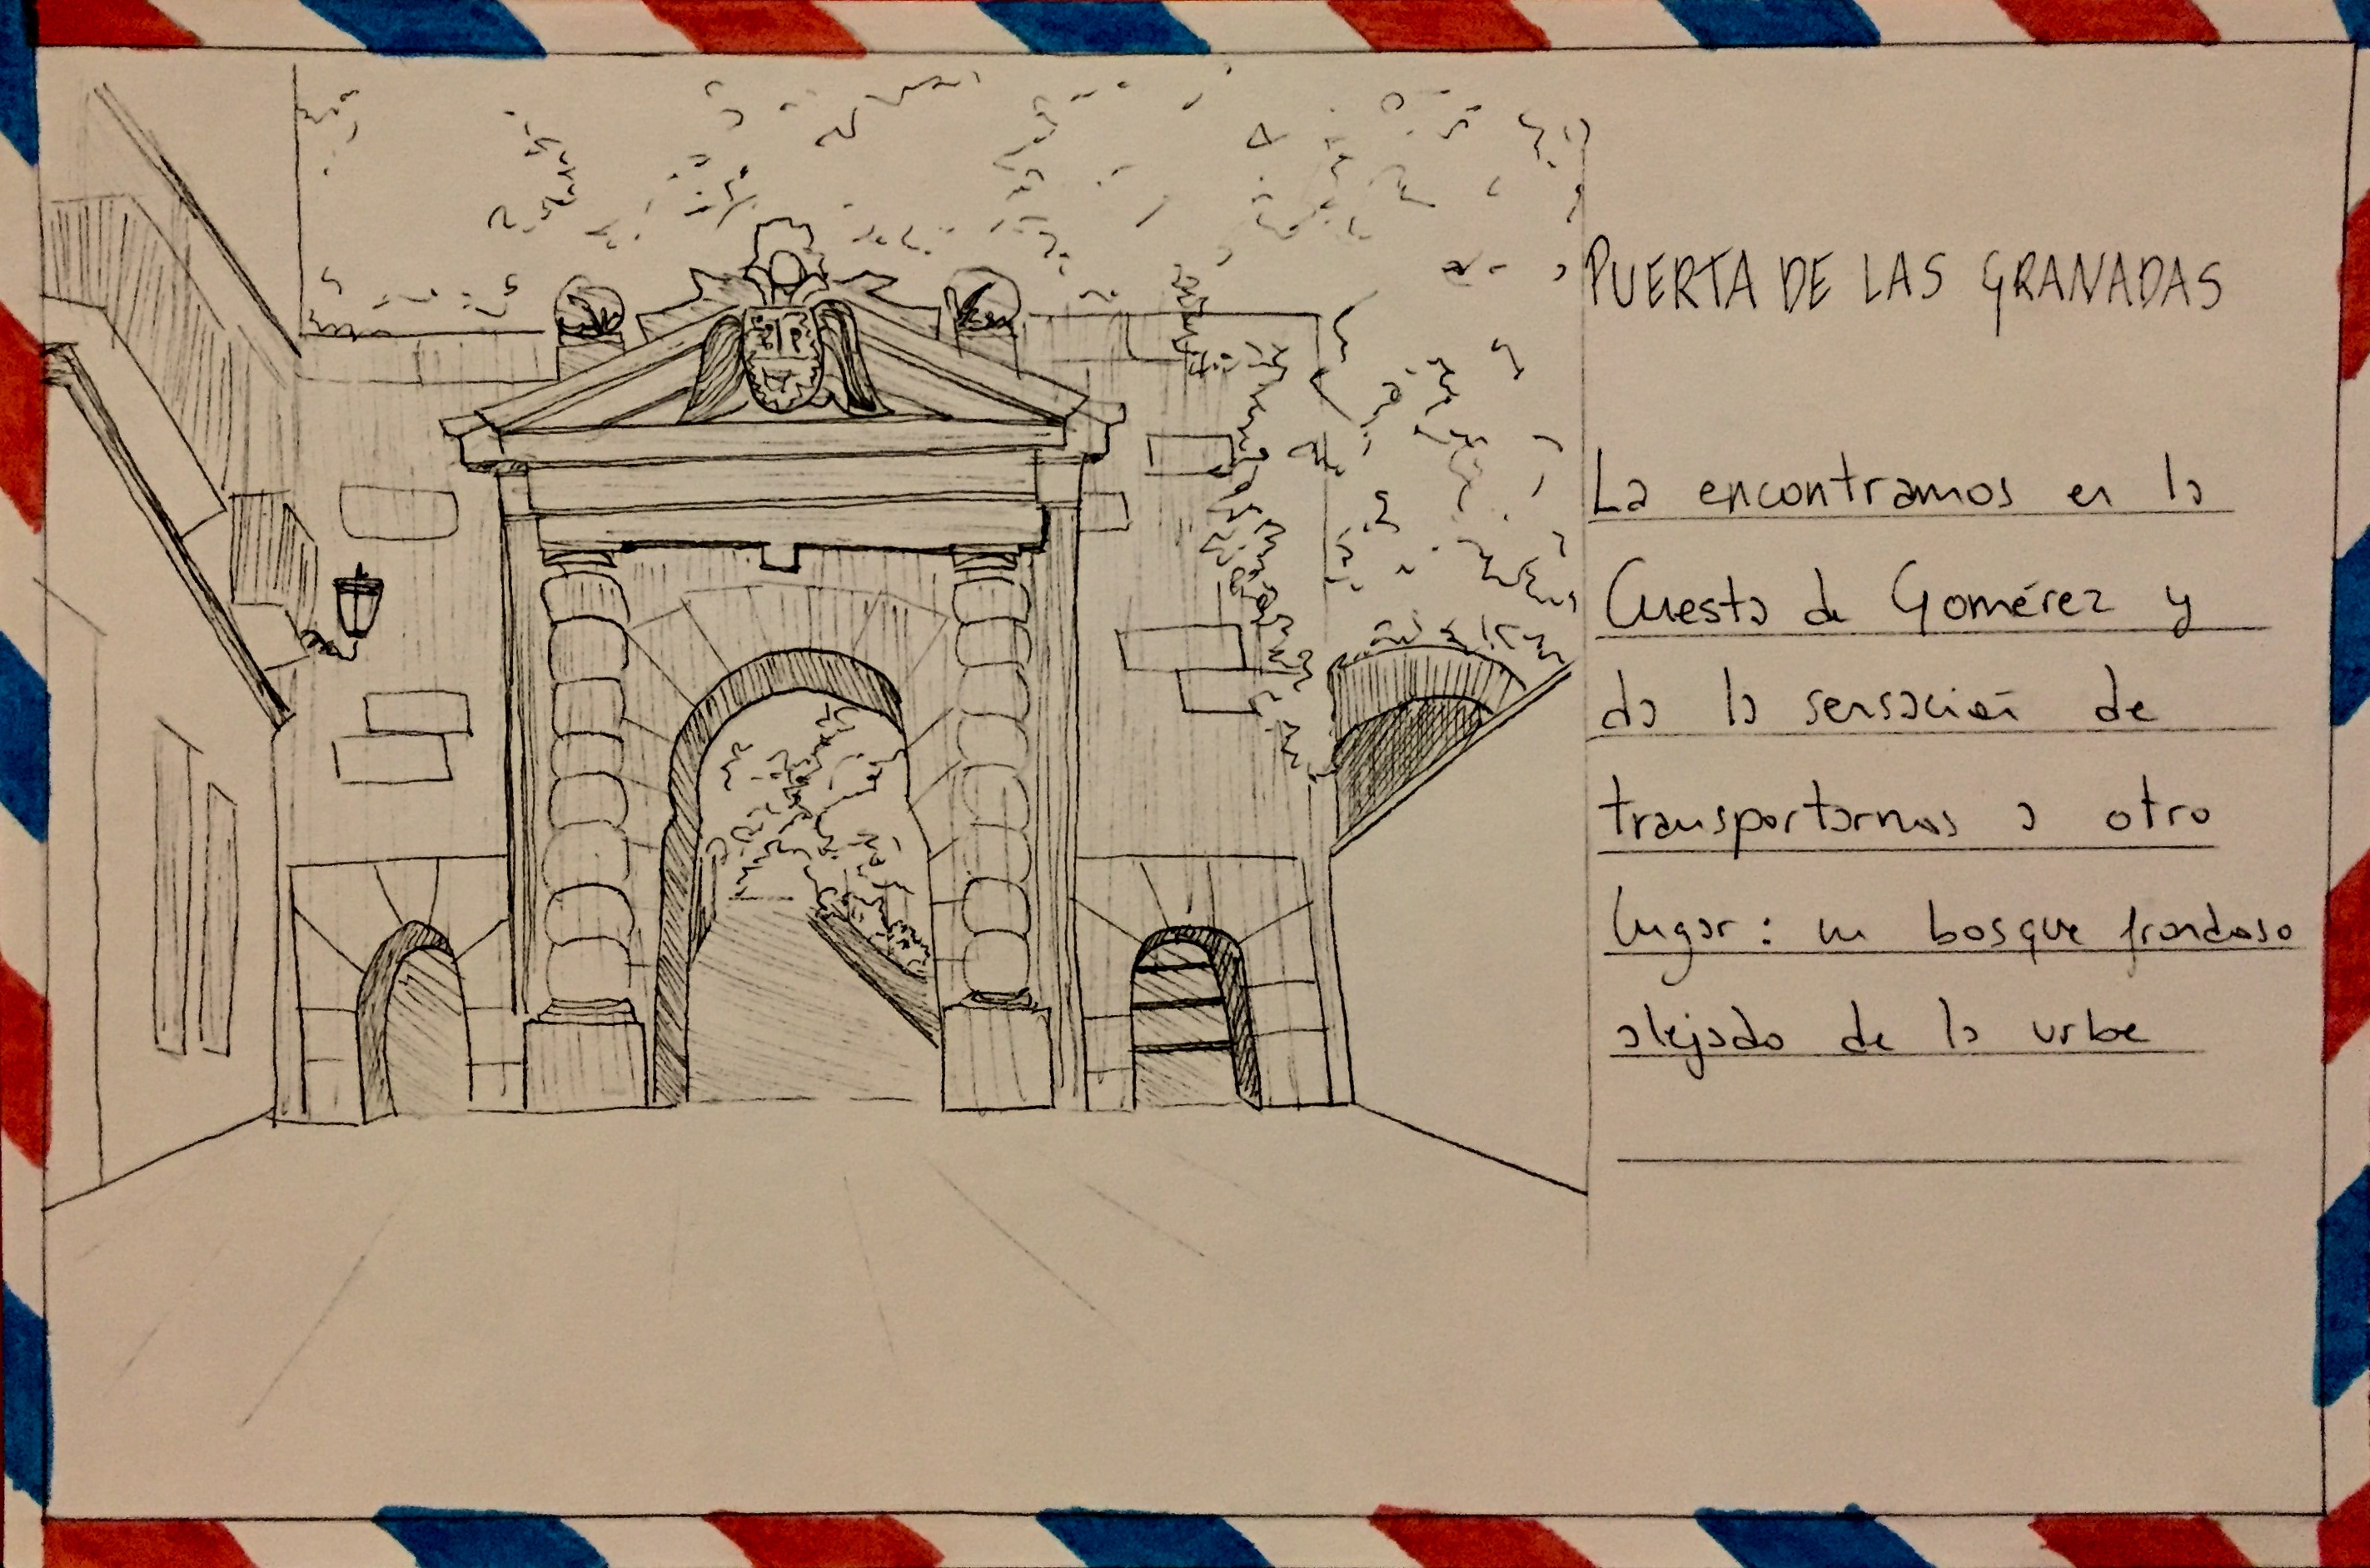 PUERTA DE LAS GRANADAS
La encontramos en la
Cuesta de Gomérez y
da la sensación de
transportarnos a otro
lugar: un bosque frondoso
alejado de la urbe